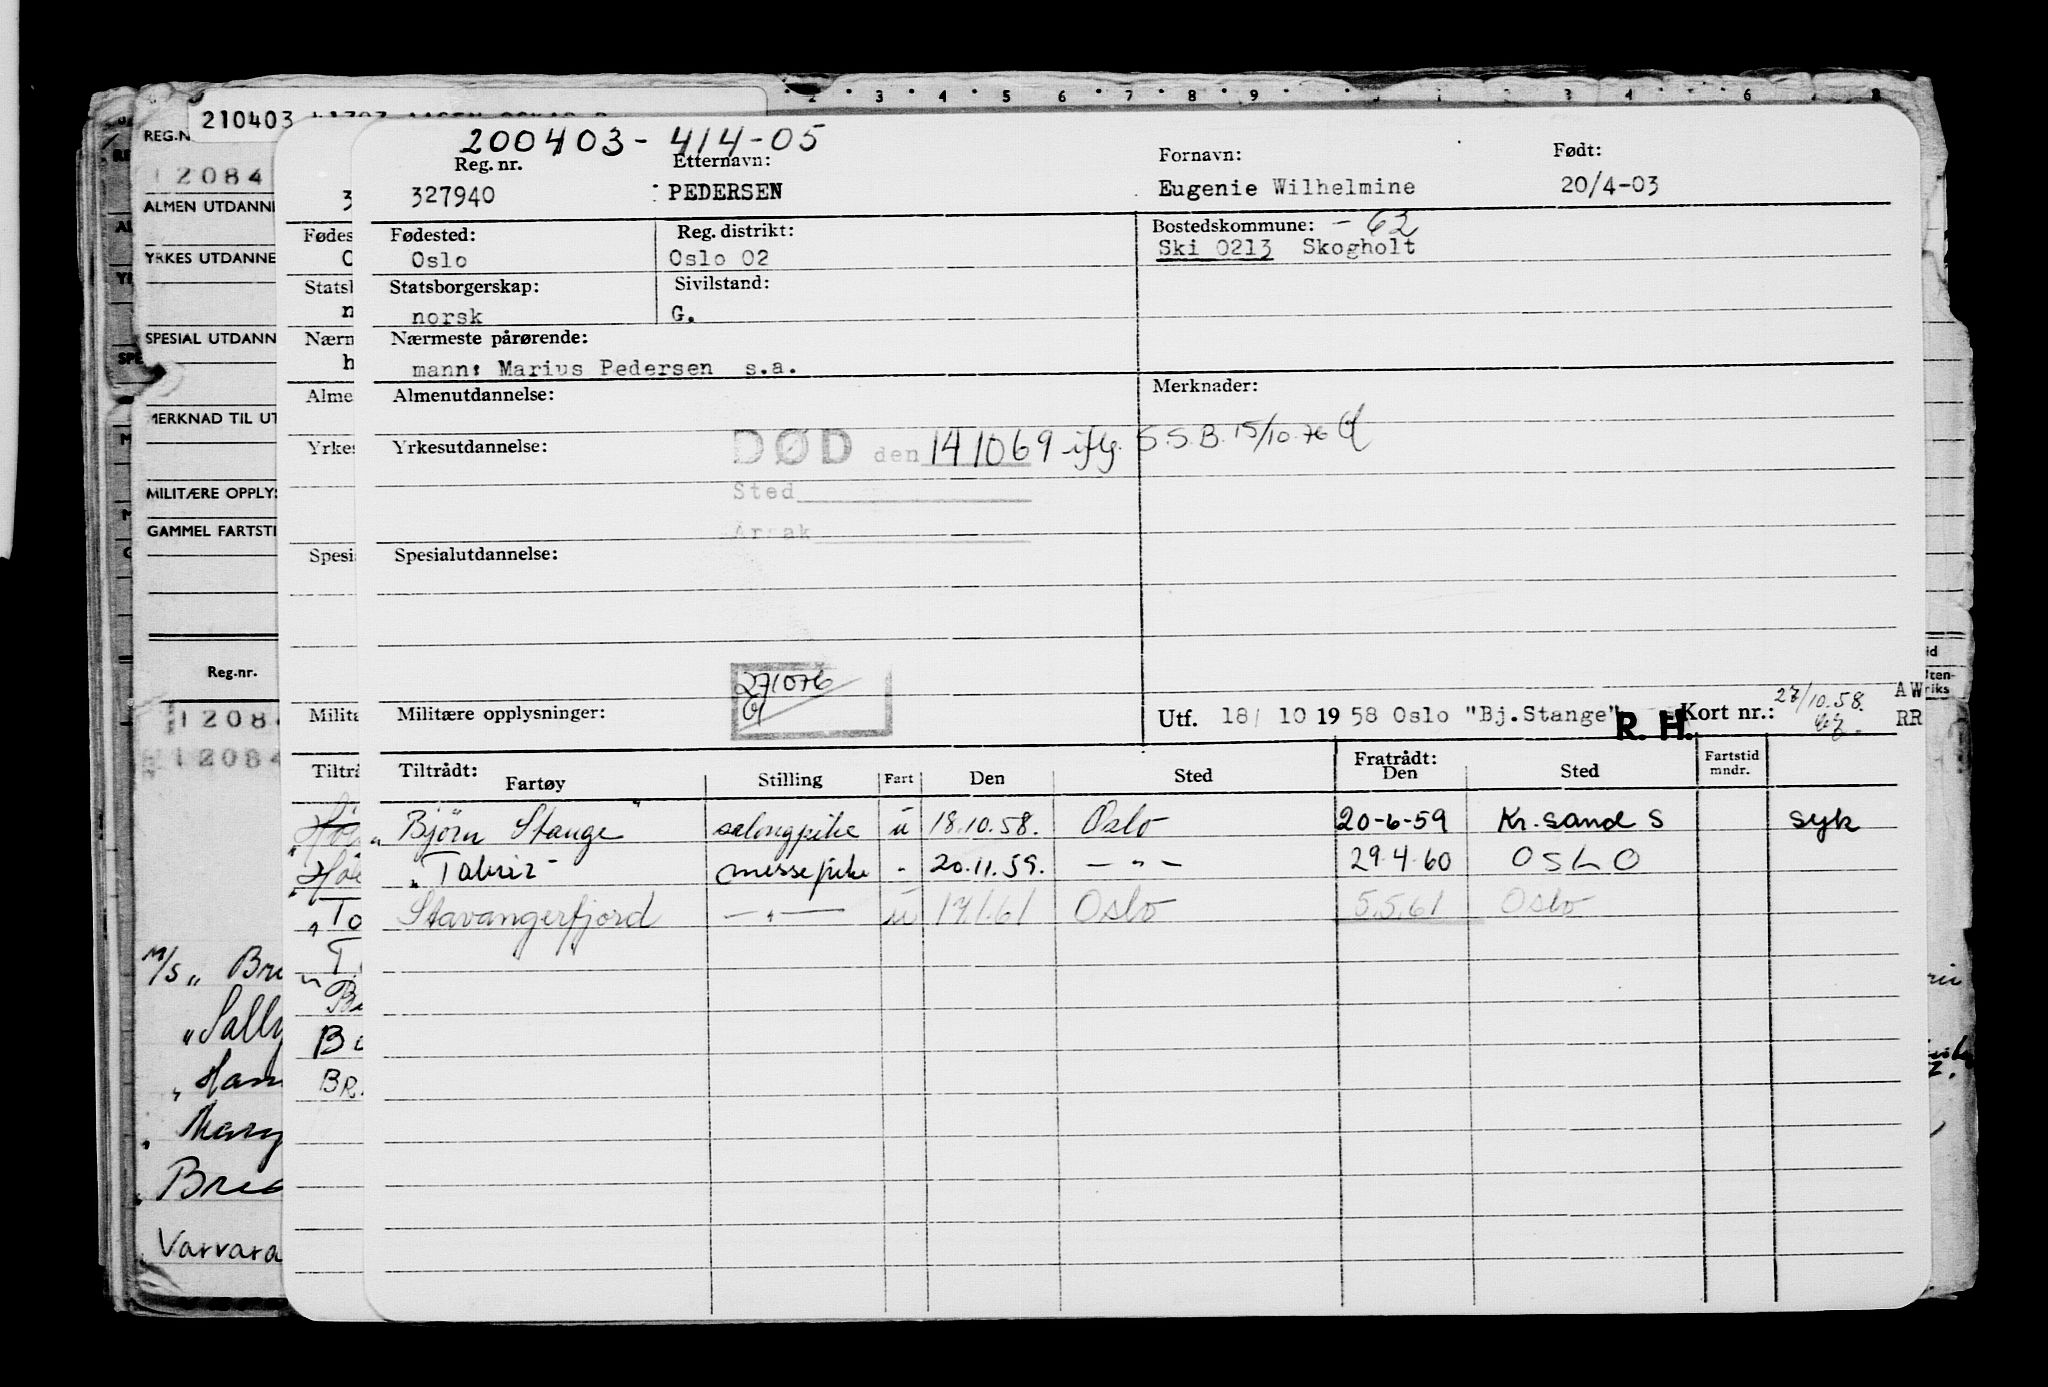 210403
200403-414-05
Reg. nr. Etternavn: Fornavn: Født:
327940 PEDERSEN Eugenie Wilhelmine 20/4-03
Fødested: Reg. distrikt: Bostedskommune: - 62
Oslo Oslo 02 Ski 0213 Skogholt
Statsborgerskap: Sivilstand:
norsk G.
Nærmeste pårørende:
mann: Marius Pedersen s.a.
Almenutdannelse: Merknader:
Yrkesutdannelse: DØD den 141069 iflg. S.S.B. 15/10.76
Sted
Årsak
Spesialutdannelse:
271076
Militære opplysninger: Utf. 18/ 10 1958 Oslo "Bj.Stange" R. H. Kort nr.: 27/10.58.
Tiltrådt: Fratrådt: Fartstid
Fartøy Stilling Fart Den Sted Den Sted mndr.
"Björn Stange" salongpike u 18.10.58. Oslo 20-6-59 Kr.sand S syk
"Tabriz" messepike - 20.11.59. — " — 29.4.60 OSLO
Stavangerfjord — " — u 17.1.61 Oslo 5.5.61 Oslo
REG.N
12084
ALMEN UTDANNE
YRKES UTDANNE
SPESIAL UTDANN
MERKNAD TIL UT
MILITÆRE OPPLYS
GAMMEL FARTSTI
Reg.-nr.
12084
12084
M/S "Bre
"Sally
"Han
"Mary
Bre
Varvara
Fødes
Statsb
Nærm
Alme
Yrkes
Spesi
Milita
Tiltrå
"To
Bo
BR
AW
RR